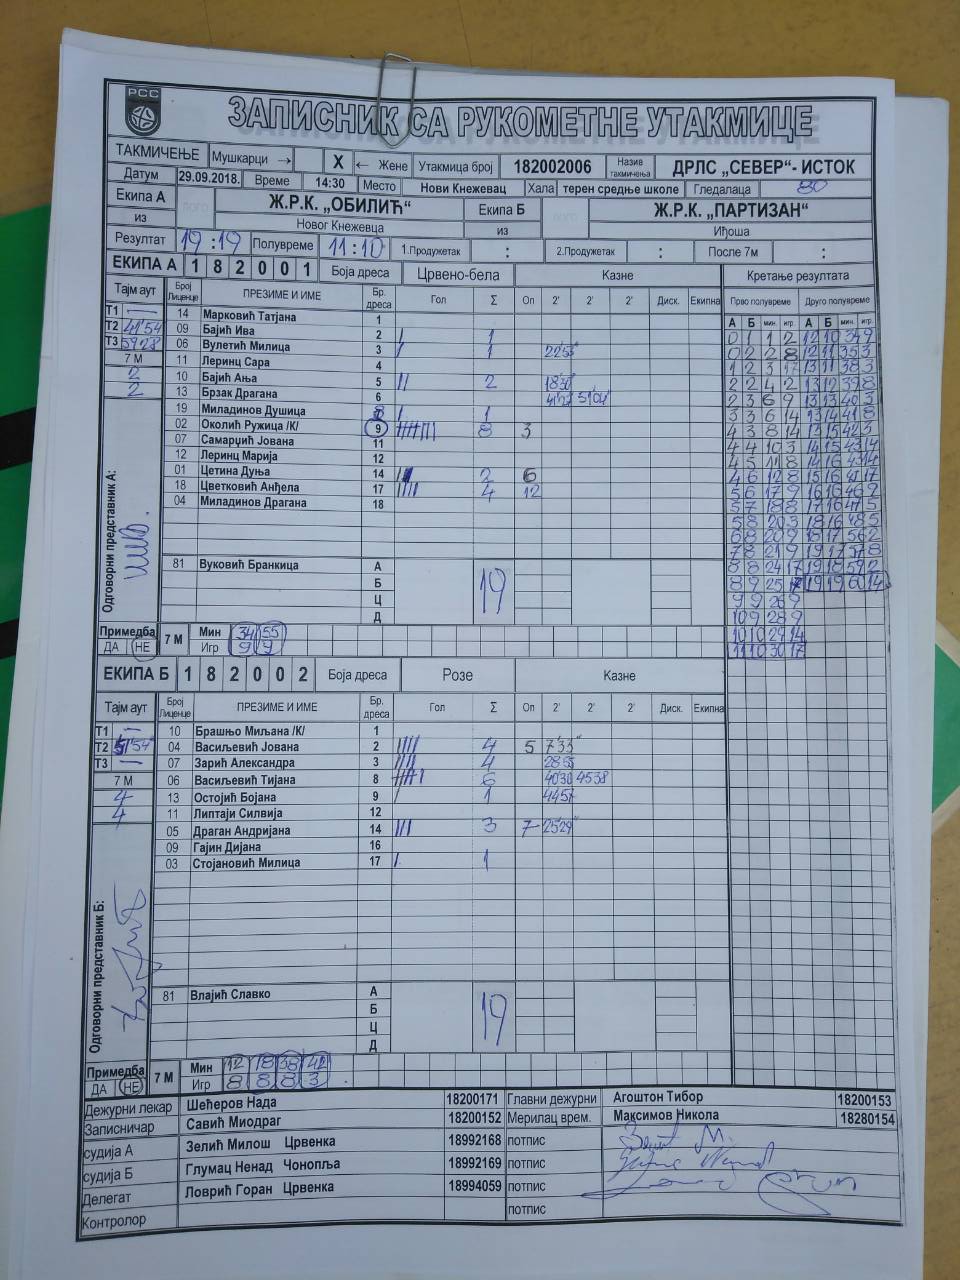 РСС
ЗАПИСНИК СА РУКОМЕТНЕ УТАКМИЦЕ
ТАКМИЧЕЊЕ Мушкарци → X ← Жене Утакмица број 182002006 Назив такмичења ДРЛС „СЕВЕР“- ИСТОК
Датум 29.09.2018. Време 14:30 Место Нови Кнежевац Хала терен средње школе Гледалаца 80
Екипа А Ж.Р.К. „ОБИЛИЋ“ Екипа Б Ж.Р.К. „ПАРТИЗАН“
из Новог Кнежевца из Иђоша
Резултат 19:19 Полувреме 11:10 1.Продужетак : 2.Продужетак : После 7м :
ЕКИПА А 1 8 2 0 0 1 Боја дреса Црвено-бела Казне Кретање резултата
Тајм аут Број Лиценце ПРЕЗИМЕ И ИМЕ Бр. дреса Гол Σ Оп 2' 2' 2' Диск. Екипна Прво полувреме Друго полувреме
А Б мин. игр. А Б мин. игр.
Т1 — 14 Марковић Татјана 1
Т2 41'54 09 Бајић Ива 2 / 1
Т3 59'28 06 Вулетић Милица 3 / 1 22'53"
7 М 11 Леринц Сара 4
2 10 Бајић Ања 5 // 2 18'30"
2 13 Брзак Драгана 6 51'04"
19 Миладинов Душица 8 / 1
02 Околић Ружица /К/ 9 8 3
07 Самарџић Јована 11
12 Леринц Марија 12
01 Цетина Дуња 14 2 6
18 Цветковић Анђела 17 //// 4 12
04 Миладинов Драгана 18
Одговорни представник А:
81 Вуковић Бранкица А 19
Б
Ц
Д
0 1 1 2 12 10 34 9
0 2 2 8 12 11 35 3
1 2 3 17 13 11 38 3
2 2 4 2 13 12 39 8
2 3 6 9 13 13 40 3
3 3 6 14 13 14 41 8
4 3 8 14 13 15 42 3
4 4 10 3 14 15 43 14
4 5 11 8 14 16 43 14
4 6 12 8 15 16 45 17
5 6 17 9 16 16 46 9
5 7 18 8 17 16 47 5
5 8 20 3 18 16 48 5
6 8 20 9 18 17 56 2
7 8 21 9 19 17 57 8
8 8 24 17 19 18 59 2
8 9 25 17 19 19 60 14
9 9 26 9
10 9 28 9
10 10 29 14
11 10 30 17
Примедба ДА НЕ 7 М Мин 34 55
Игр 9 9
ЕКИПА Б 1 8 2 0 0 2 Боја дреса Розе Казне
Тајм аут Број Лиценце ПРЕЗИМЕ И ИМЕ Бр. дреса Гол Σ Оп 2' 2' 2' Диск. Екипна
Т1 — 10 Брашњо Миљана /К/ 1
Т2 51'54" 04 Васиљевић Јована 2 //// 4 5 7'33"
Т3 — 07 Зарић Александра 3 //// 4 28'55
7 М 06 Васиљевић Тијана 8 6 40'30 45'38
4 13 Остојић Бојана 9 / 1 44'57
4 11 Липтаји Силвија 12
05 Драган Андријана 14 /// 3 7 25'29"
09 Гајин Дијана 16
03 Стојановић Милица 17 / 1
Одговорни представник Б:
81 Влајић Славко А 19
Б
Ц
Д
Примедба ДА НЕ 7 М Мин 12 18 38 42
Игр 8 8 8 3
Дежурни лекар Шећеров Нада 18200171 Главни дежурни Агоштон Тибор 18200153
Записничар Савић Миодраг 18200152 Мерилац врем. Максимов Никола 18280154
судија А Зелић Милош Црвенка 18992168 потпис
судија Б Глумац Ненад Чонопља 18992169 потпис
Делегат Ловрић Горан Црвенка 18994059 потпис
Контролор потпис